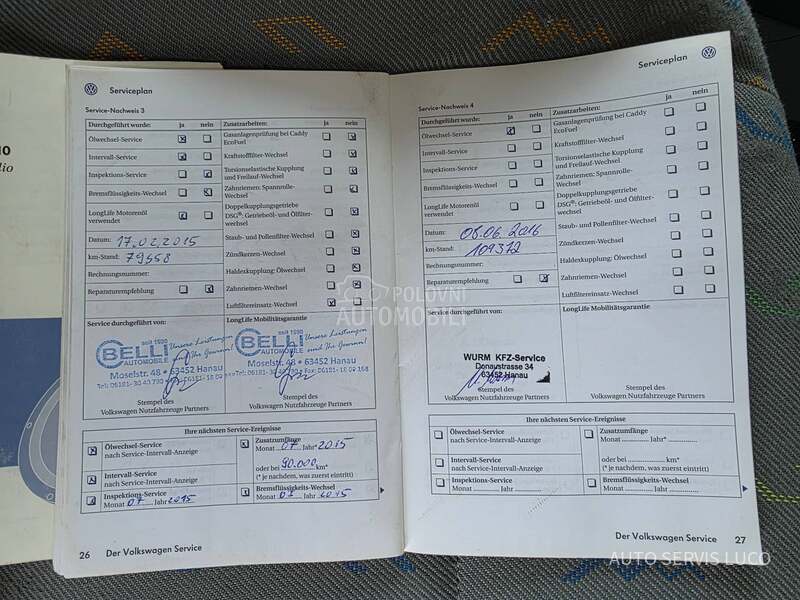 10
dio
Serviceplan
Service-Nachweis 3
Durchgeführt wurde: ja nein
Ölwechsel-Service
Intervall-Service
Inspektions-Service
Bremsflüssigkeits-Wechsel
LongLife Motorenöl
verwendet
Datum: 17.02.2015
km-Stand: 79558
Rechnungsnummer:
Reparaturempfehlung
Zusatzarbeiten: ja nein
Gasanlagenprüfung bei Caddy
EcoFuel
Kraftstofffilter-Wechsel
Torsionselastische Kupplung
und Freilauf-Wechsel
Zahnriemen: Spannrolle-
Wechsel
Doppelkupplungsgetriebe
DSG®: Getriebeöl- und Ölfilter-
wechsel
Staub- und Pollenfilter-Wechsel
Zündkerzen-Wechsel
Haldexkupplung: Ölwechsel
Zahnriemen-Wechsel
Luftfiltereinsatz-Wechsel
Service durchgeführt von:
seit 1930
BELLI
AUTOMOBILE
Unsere Leistungen
Moselstr. 48 • 63452 Hanau
Stempel des
Volkswagen Nutzfahrzeuge Partners
LongLife Mobilitätsgarantie
seit 1930
BELLI
AUTOMOBILE
Unsere Leistungen
Moselstr. 48 • 63452 Hanau
Stempel des
Volkswagen Nutzfahrzeuge Partners
Ihre nächsten Service-Ereignisse
Ölwechsel-Service
nach Service-Intervall-Anzeige
Intervall-Service
nach Service-Intervall-Anzeige
Inspektions-Service
Monat 07 Jahr 2015
Zusatzumfänge
Monat 07 Jahr* 2015
oder bei 90.000 km*
(* je nachdem, was zuerst eintritt)
Bremsflüssigkeits-Wechsel
Monat 07 Jahr 2015
26 Der Volkswagen Service
Serviceplan
Service-Nachweis 4
Durchgeführt wurde: ja nein
Ölwechsel-Service
Intervall-Service
Inspektions-Service
Bremsflüssigkeits-Wechsel
LongLife Motorenöl
verwendet
Datum: 08.06.2016
km-Stand: 109372
Rechnungsnummer:
Reparaturempfehlung
Zusatzarbeiten: ja nein
Gasanlagenprüfung bei Caddy
EcoFuel
Kraftstofffilter-Wechsel
Torsionselastische Kupplung
und Freilauf-Wechsel
Zahnriemen: Spannrolle-
Wechsel
Doppelkupplungsgetriebe
DSG®: Getriebeöl- und Ölfilter-
wechsel
Staub- und Pollenfilter-Wechsel
Zündkerzen-Wechsel
Haldexkupplung: Ölwechsel
Zahnriemen-Wechsel
Luftfiltereinsatz-Wechsel
Service durchgeführt von:
WURM KFZ-Service
Donaustrasse 34
63452 Hanau
Stempel des
Volkswagen Nutzfahrzeuge Partners
LongLife Mobilitätsgarantie
Stempel des
Volkswagen Nutzfahrzeuge Partners
Ihre nächsten Service-Ereignisse
Ölwechsel-Service
nach Service-Intervall-Anzeige
Intervall-Service
nach Service-Intervall-Anzeige
Inspektions-Service
Monat ........ Jahr ........
Zusatzumfänge
Monat ........ Jahr* ........
oder bei ........ km*
(* je nachdem, was zuerst eintritt)
Bremsflüssigkeits-Wechsel
Monat ........ Jahr ........
Der Volkswagen Service 27
POLOVNI
AUTOMOBILI
AUTO SERVIS LUCO